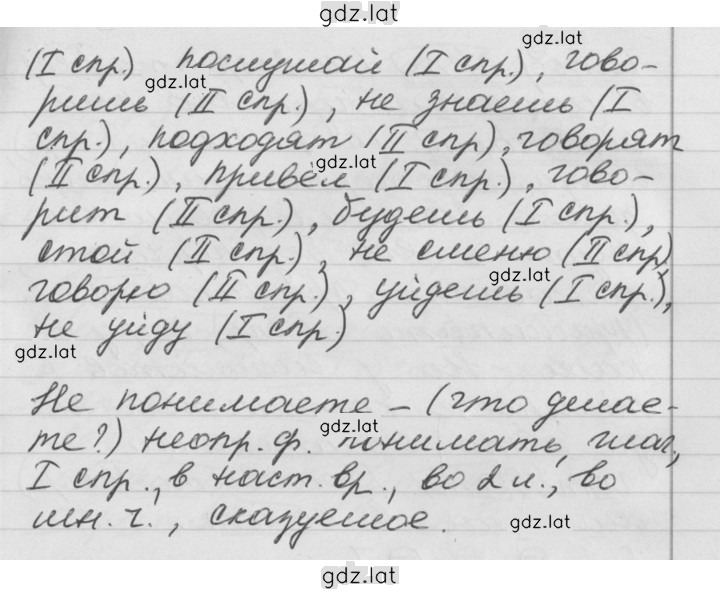 gdz.lat
gdz.lat
(I спр.) послушай (I спр.), гово-
gdz.lat
ришь (II спр.), не знаешь (I
спр.), подходят (II спр), говорят
gdz.lat
(II спр.), привёл (I спр.), гово-
рит (II спр.), будешь (I спр.),
стой (II спр.), не сменю (II спр)
gdz.lat
говорю (II спр.), уйдешь (I спр.),
не уйду (I спр.)
gdz.lat
Не понимаете – (что делае-
gdz.lat
те?) неопр. ф. понимать, глаг,
I спр., в наст. вр., во 2 л., во
мн. ч., сказуемое.
gdz.lat
gdz.lat